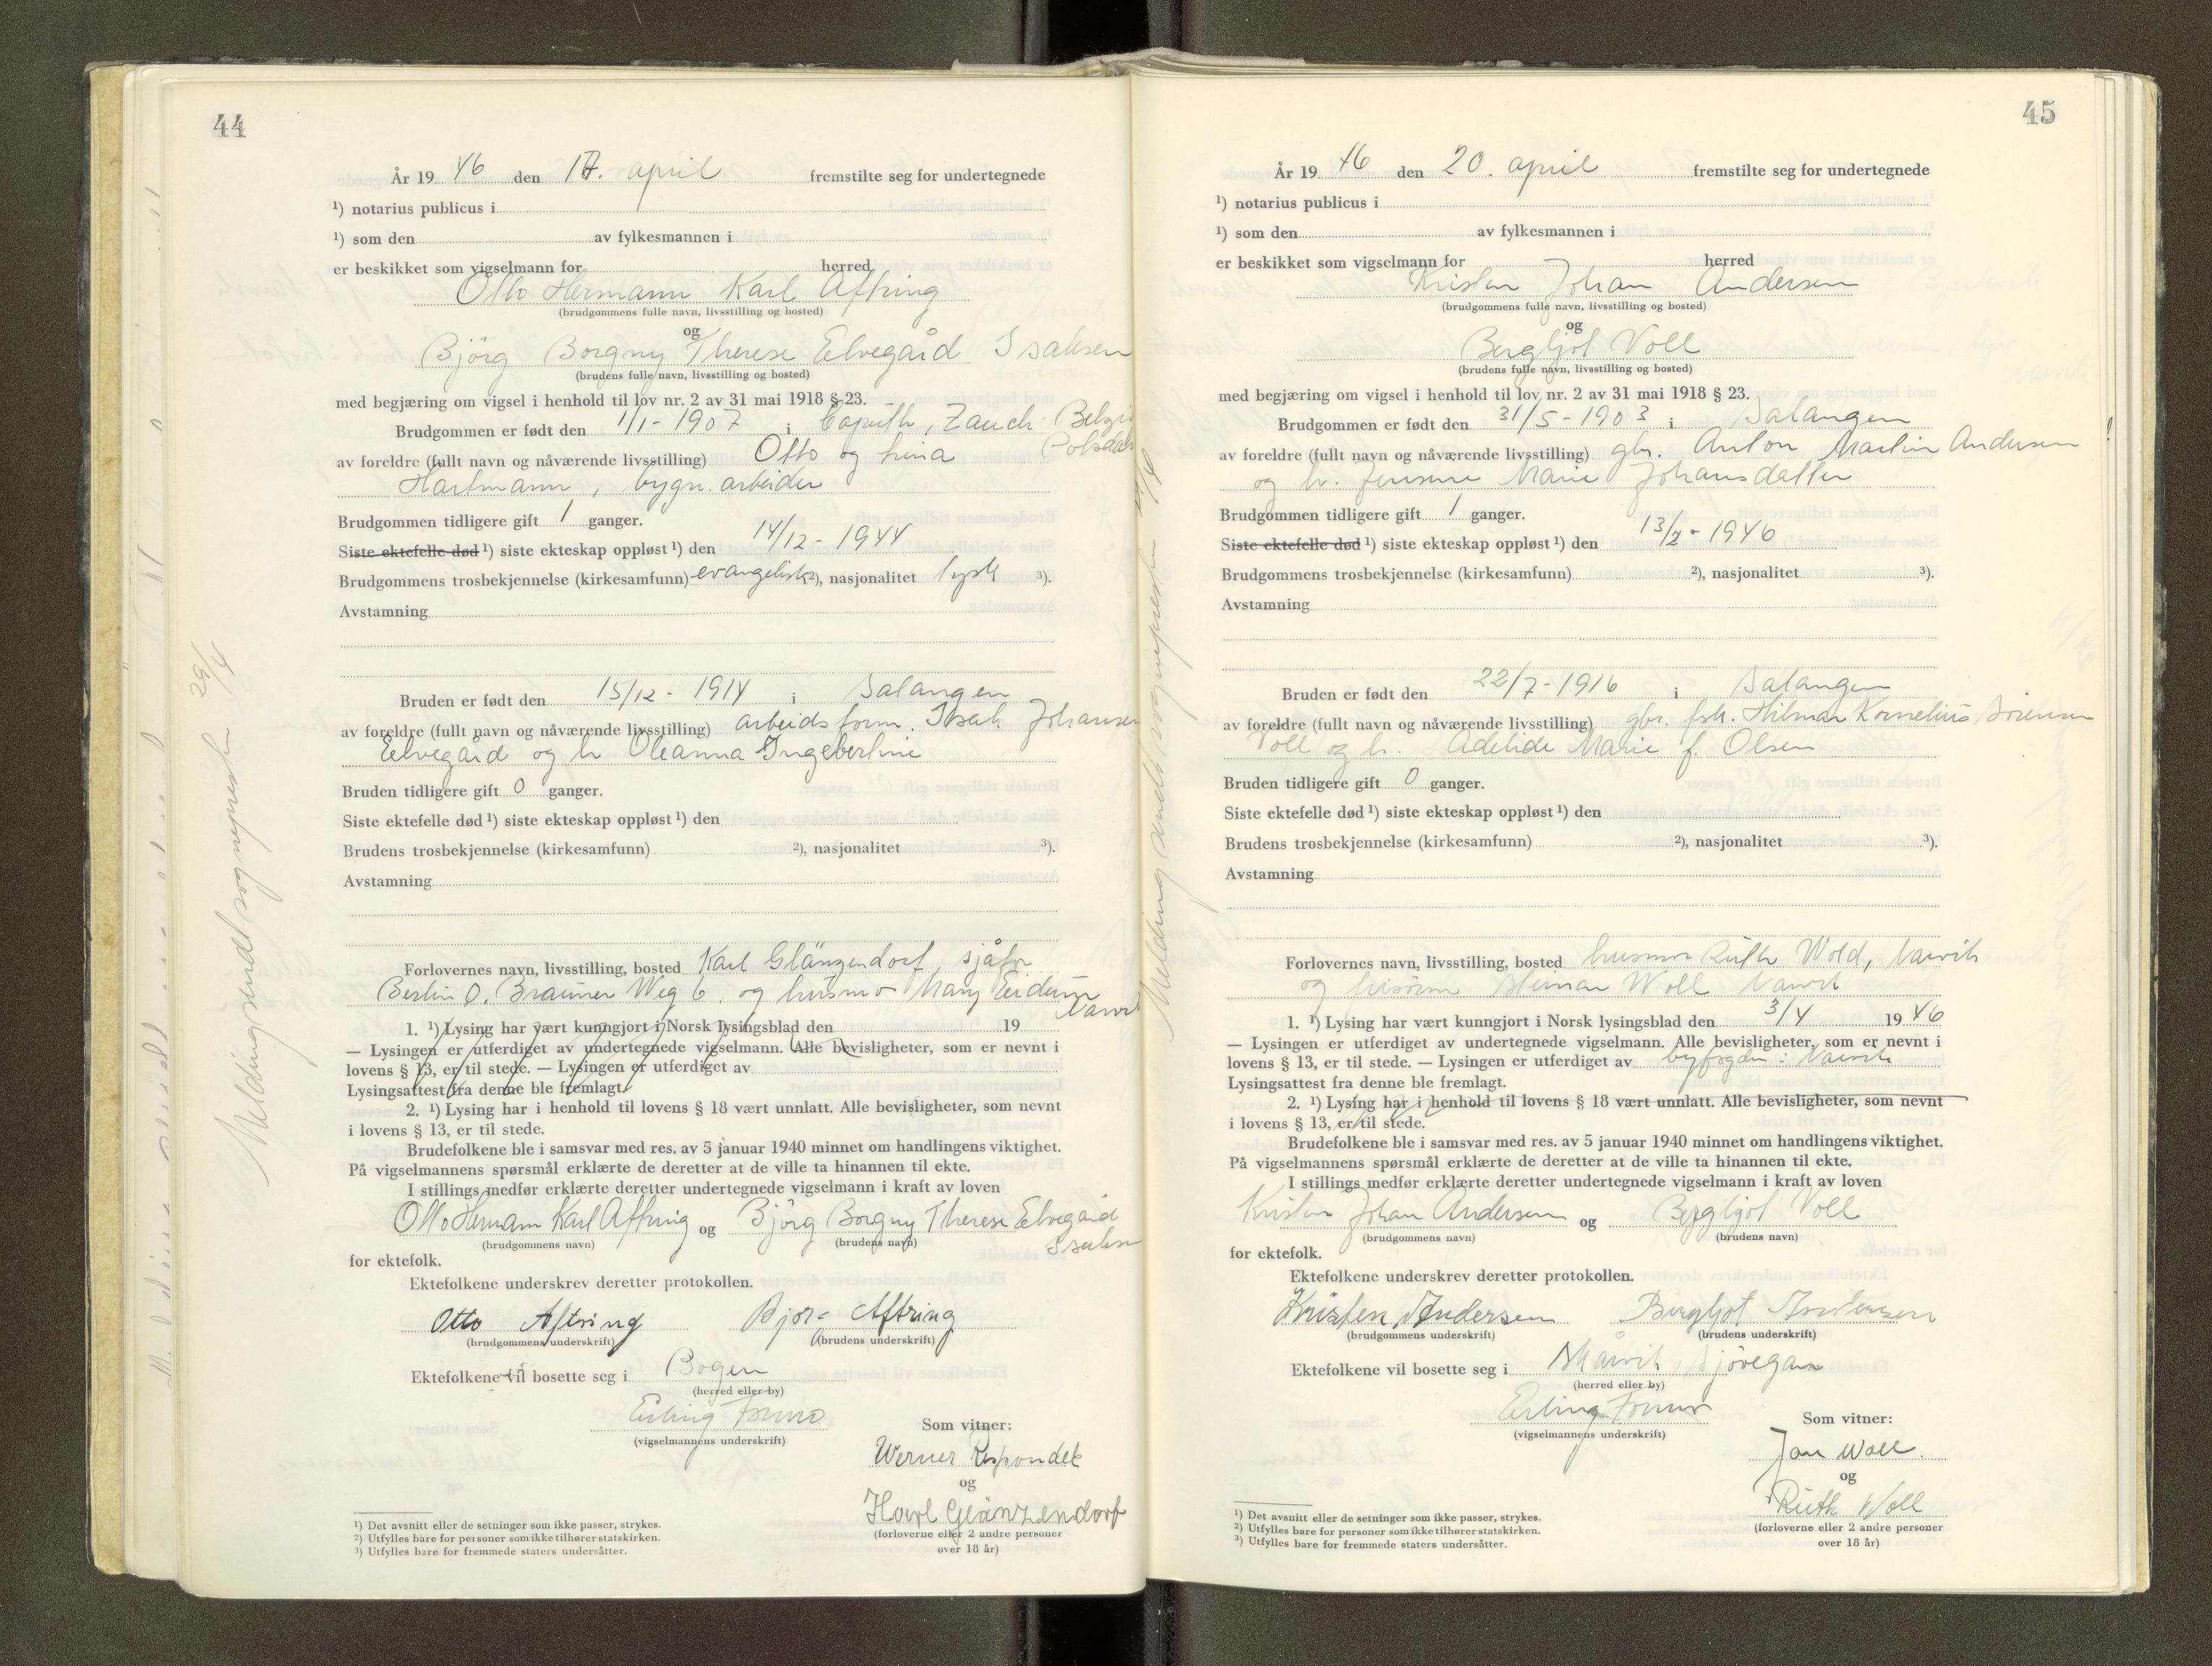 44
År 19 46 den 17. april fremstilte seg for undertegnede
¹) notarius publicus i
¹) som den av fylkesmannen i
er beskikket som vigselmann for herred
Otto Hermann Karl Aftring
(brudgommens fulle navn, livsstilling og bosted)
og
Bjørg Borgny Therese Elvegård Isaksen
(brudens fulle navn, livsstilling og bosted)
med begjæring om vigsel i henhold til lov nr. 2 av 31 mai 1918 § 23.
Brudgommen er født den 1/1 - 1907 i Caputh, Zauch-Belzig
av foreldre (fullt navn og nåværende livsstilling) Otto og
Hartmann, bygn. arbeider
Brudgommen tidligere gift 1 ganger.
Siste ektefelle død ¹) siste ekteskap oppløst ¹) den 14/12 - 1944
Brudgommens trosbekjennelse (kirkesamfunn) evangelisk ²), nasjonalitet tysk ³).
Avstamning
Bruden er født den 15/12 - 1914 i Salangen
av foreldre (fullt navn og nåværende livsstilling) arbeidsform. Isak Johansen
Elvegård og h. Oleanna Ingebertine
Bruden tidligere gift 0 ganger.
Siste ektefelle død ¹) siste ekteskap oppløst ¹) den
Brudens trosbekjennelse (kirkesamfunn) ²), nasjonalitet ³).
Avstamning
Forlovernes navn, livsstilling, bosted Karl Glänzendorf, sjåfør
Berlin O. Brauner Weg 6, og husmor Mary
Narvik
1. ¹) Lysing har vært kunngjort i Norsk lysingsblad den 19
— Lysingen er utferdiget av undertegnede vigselmann. Alle bevisligheter, som er nevnt i
lovens § 13, er til stede. — Lysingen er utferdiget av
Lysingsattest fra denne ble fremlagt.
2. ¹) Lysing har i henhold til lovens § 18 vært unnlatt. Alle bevisligheter, som nevnt
i lovens § 13, er til stede.
Brudefolkene ble i samsvar med res. av 5 januar 1940 minnet om handlingens viktighet.
På vigselmannens spørsmål erklærte de deretter at de ville ta hinannen til ekte.
I stillings medfør erklærte deretter undertegnede vigselmann i kraft av loven
Otto Hermann Karl Aftring og Bjørg Borgny Therese Elvegård
Isaksen
(brudgommens navn) (brudens navn)
for ektefolk.
Ektefolkene underskrev deretter protokollen.
Otto Aftring Bjørg Aftring
(brudgommens underskrift) (brudens underskrift)
Ektefolkene vil bosette seg i Bogen
(herred eller by)
Erling
(vigselmannens underskrift)
Som vitner:
Werner Respondek
og
Karl Glänzendorf
(forloverne eller 2 andre personer
over 18 år)
¹) Det avsnitt eller de setninger som ikke passer, strykes.
²) Utfylles bare for personer som ikke tilhører statskirken.
³) Utfylles bare for fremmede staters undersåtter.
Melding sendt sognepresten 29/4
45
År 19 46 den 20. april fremstilte seg for undertegnede
¹) notarius publicus i
¹) som den av fylkesmannen i
er beskikket som vigselmann for herred
Kristen Johan Andersen
(brudgommens fulle navn, livsstilling og bosted)
og
Bergljot Voll
(brudens fulle navn, livsstilling og bosted)
med begjæring om vigsel i henhold til lov nr. 2 av 31 mai 1918 § 23.
Brudgommen er født den 31/5 - 1903 i Salangen
av foreldre (fullt navn og nåværende livsstilling) gbr. Anton Martin Andersen
og h. Jensine Marie Johansdatter
Brudgommen tidligere gift 1 ganger.
Siste ektefelle død ¹) siste ekteskap oppløst ¹) den 13/2 - 1946
Brudgommens trosbekjennelse (kirkesamfunn) ²), nasjonalitet ³).
Avstamning
Bruden er født den 22/7 - 1916 i Salangen
av foreldre (fullt navn og nåværende livsstilling) gbr. fsk. Hilmar Kornelius Sørensen
Voll og h. Adelide Marie f. Olsen
Bruden tidligere gift 0 ganger.
Siste ektefelle død ¹) siste ekteskap oppløst ¹) den
Brudens trosbekjennelse (kirkesamfunn) ²), nasjonalitet ³).
Avstamning
Forlovernes navn, livsstilling, bosted husmor Ruth Wold, Narvik
og Woll Narvik
1. ¹) Lysing har vært kunngjort i Norsk lysingsblad den 3/4 19 46
— Lysingen er utferdiget av undertegnede vigselmann. Alle bevisligheter, som er nevnt i
lovens § 13, er til stede. — Lysingen er utferdiget av byfogden i Narvik
Lysingsattest fra denne ble fremlagt.
2. ¹) Lysing har i henhold til lovens § 18 vært unnlatt. Alle bevisligheter, som nevnt
i lovens § 13, er til stede.
Brudefolkene ble i samsvar med res. av 5 januar 1940 minnet om handlingens viktighet.
På vigselmannens spørsmål erklærte de deretter at de ville ta hinannen til ekte.
I stillings medfør erklærte deretter undertegnede vigselmann i kraft av loven
Kristen Johan Andersen og Bergljot Voll
(brudgommens navn) (brudens navn)
for ektefolk.
Ektefolkene underskrev deretter protokollen.
Kristen Andersen Bergljot Andersen
(brudgommens underskrift) (brudens underskrift)
Ektefolkene vil bosette seg i Sjøvegan
(herred eller by)
Erling
(vigselmannens underskrift)
Som vitner:
Jan Woll.
og
Ruth Woll
(forloverne eller 2 andre personer
over 18 år)
¹) Det avsnitt eller de setninger som ikke passer, strykes.
²) Utfylles bare for personer som ikke tilhører statskirken.
³) Utfylles bare for fremmede staters undersåtter.
Melding sendt sognepresten